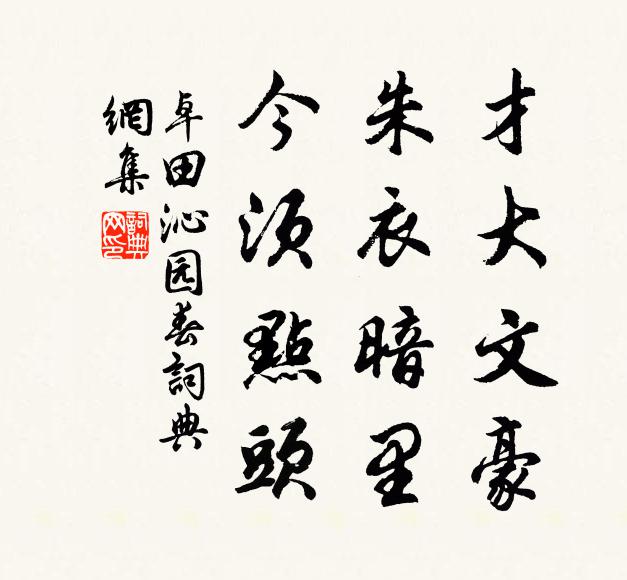 才大文豪
朱衣暗里
今须點頭
卓田沁园春詞典
網集
詞典
网印